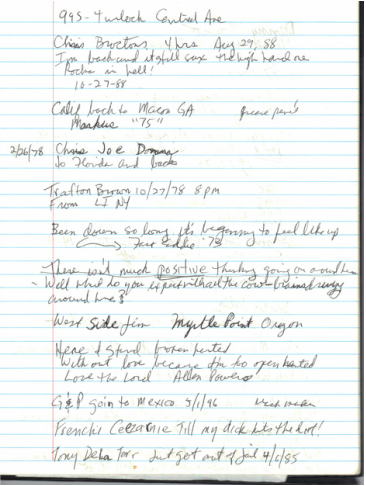 99S - Turlock Central Ave
Chris Broctons, 4 hrs Aug 29, 88
I'm back and it still sux the high hard one
Rocks in hell!
10-27-88
Calif back to Macon GA
Markus "75"
2/26/78 Chris Joe
To Florida and back
Trafton Brown 10/27/78 8 pm
From LI NY
Been down so long, it's beginning to feel like up
Fast Eddie '79
There isn't much positive thinking going on around here
Well what do you expect with all the cow brained
around here?
West Side Jim Myrtle Point Oregon
Here I stand broken hearted
Without love because I'm too open hearted
Love the Lord Allen Powers
G & P goin to Mexico 5/1/96
Frenchi Till my dick hits the dirt!
Tony DeLa Torr Just get out of Jail 4/1/85